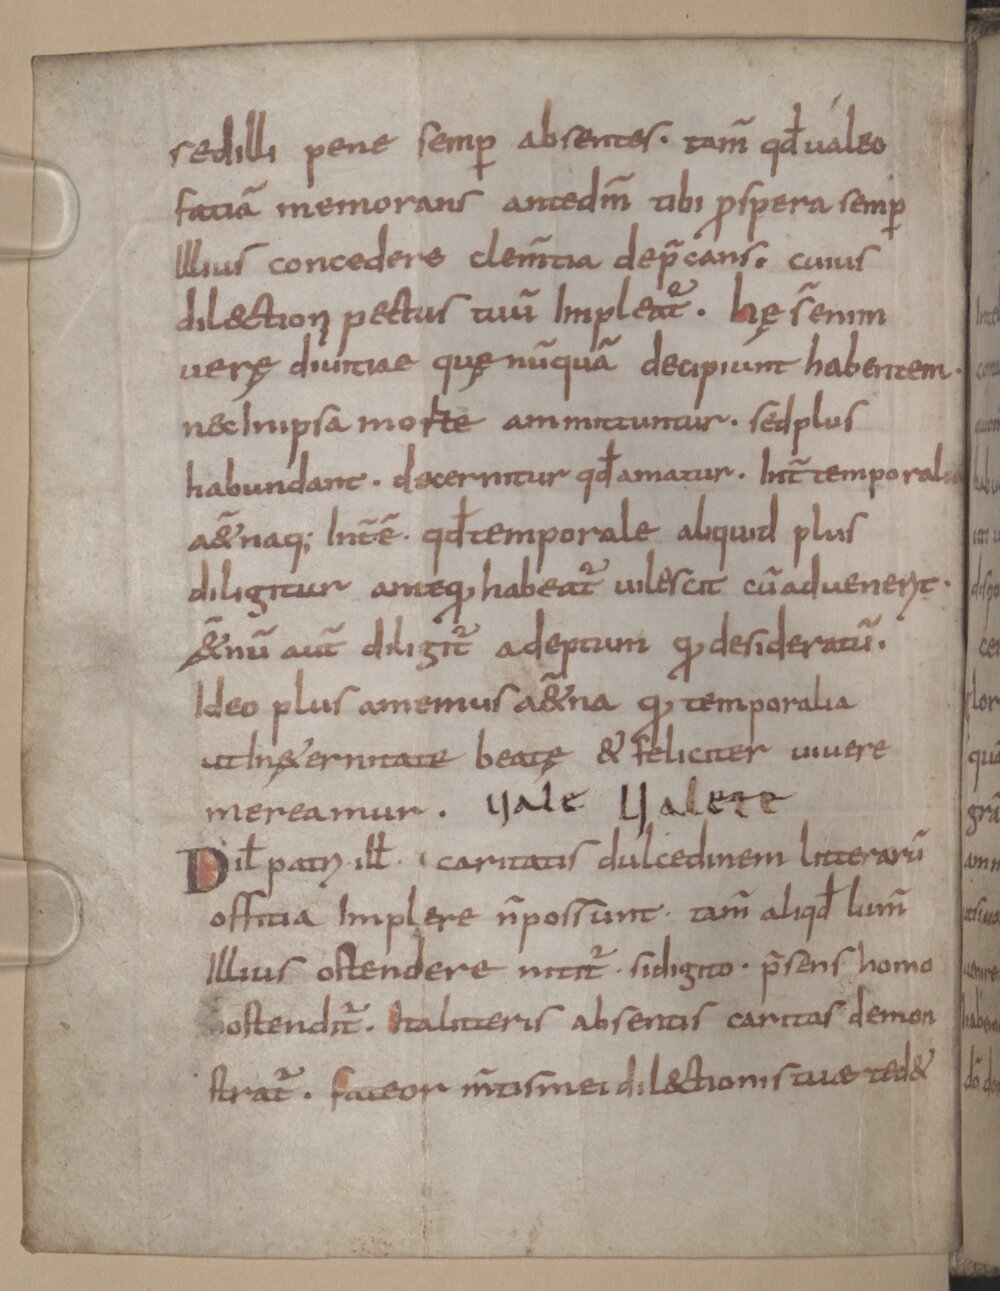 sedilli pene semꝑ absentes. tam̄ qđ ualeo
fatiā memorans anted̄m tibi ꝓspera semꝑ
Illius concedere clem̄tia dep̄cans. cuius
dil&ction pectus tuū Impleat᷑. hę s̄enim
uerę diuitiae quę nūquā decipiunt habentem.
nec Inipsa morte ammittuntur. sed plus
habundant. dcernitur qđ amatur. Int̄ temporal
a&̄naq; Int̄ē. qđ temporale aliquid plus
diligitur anteq̨ habeat᷑ uilescit cū aduenerit.
&̄nū aut̄ diligit᷑ adeptum q̨ desideratū.
Ideo plus amemus a&̄na q̨ temporalia
ut In&ernitate beatę & feliciter uiuere
mereamur. Uale Ualete
Dil̄ patri ill̄. caritatis dulcedinem litterarū
offitia Implere n̄ possunt. tam̄ aliqđ lum̄
Illius ostendere nitit᷑. si digito. p̄sens homo
ostendit᷑. Ita litteris absentis caritas demon
strat᷑. fateor m̄tis mei dil&ctionis tuae ted&